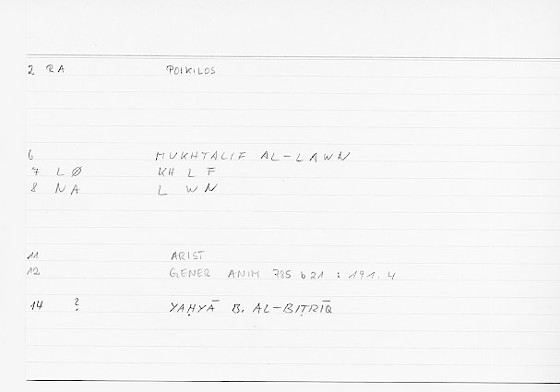 2 RA POIKILOS
6 MUKHTALIF AL-LAWN
7 LØ KH L F
8 NA L WN
11 ARIST
12 GENER ANIM 785 b 21 : 191.4
14 ? YAḤYĀ B. AL-BIṬRĪQ